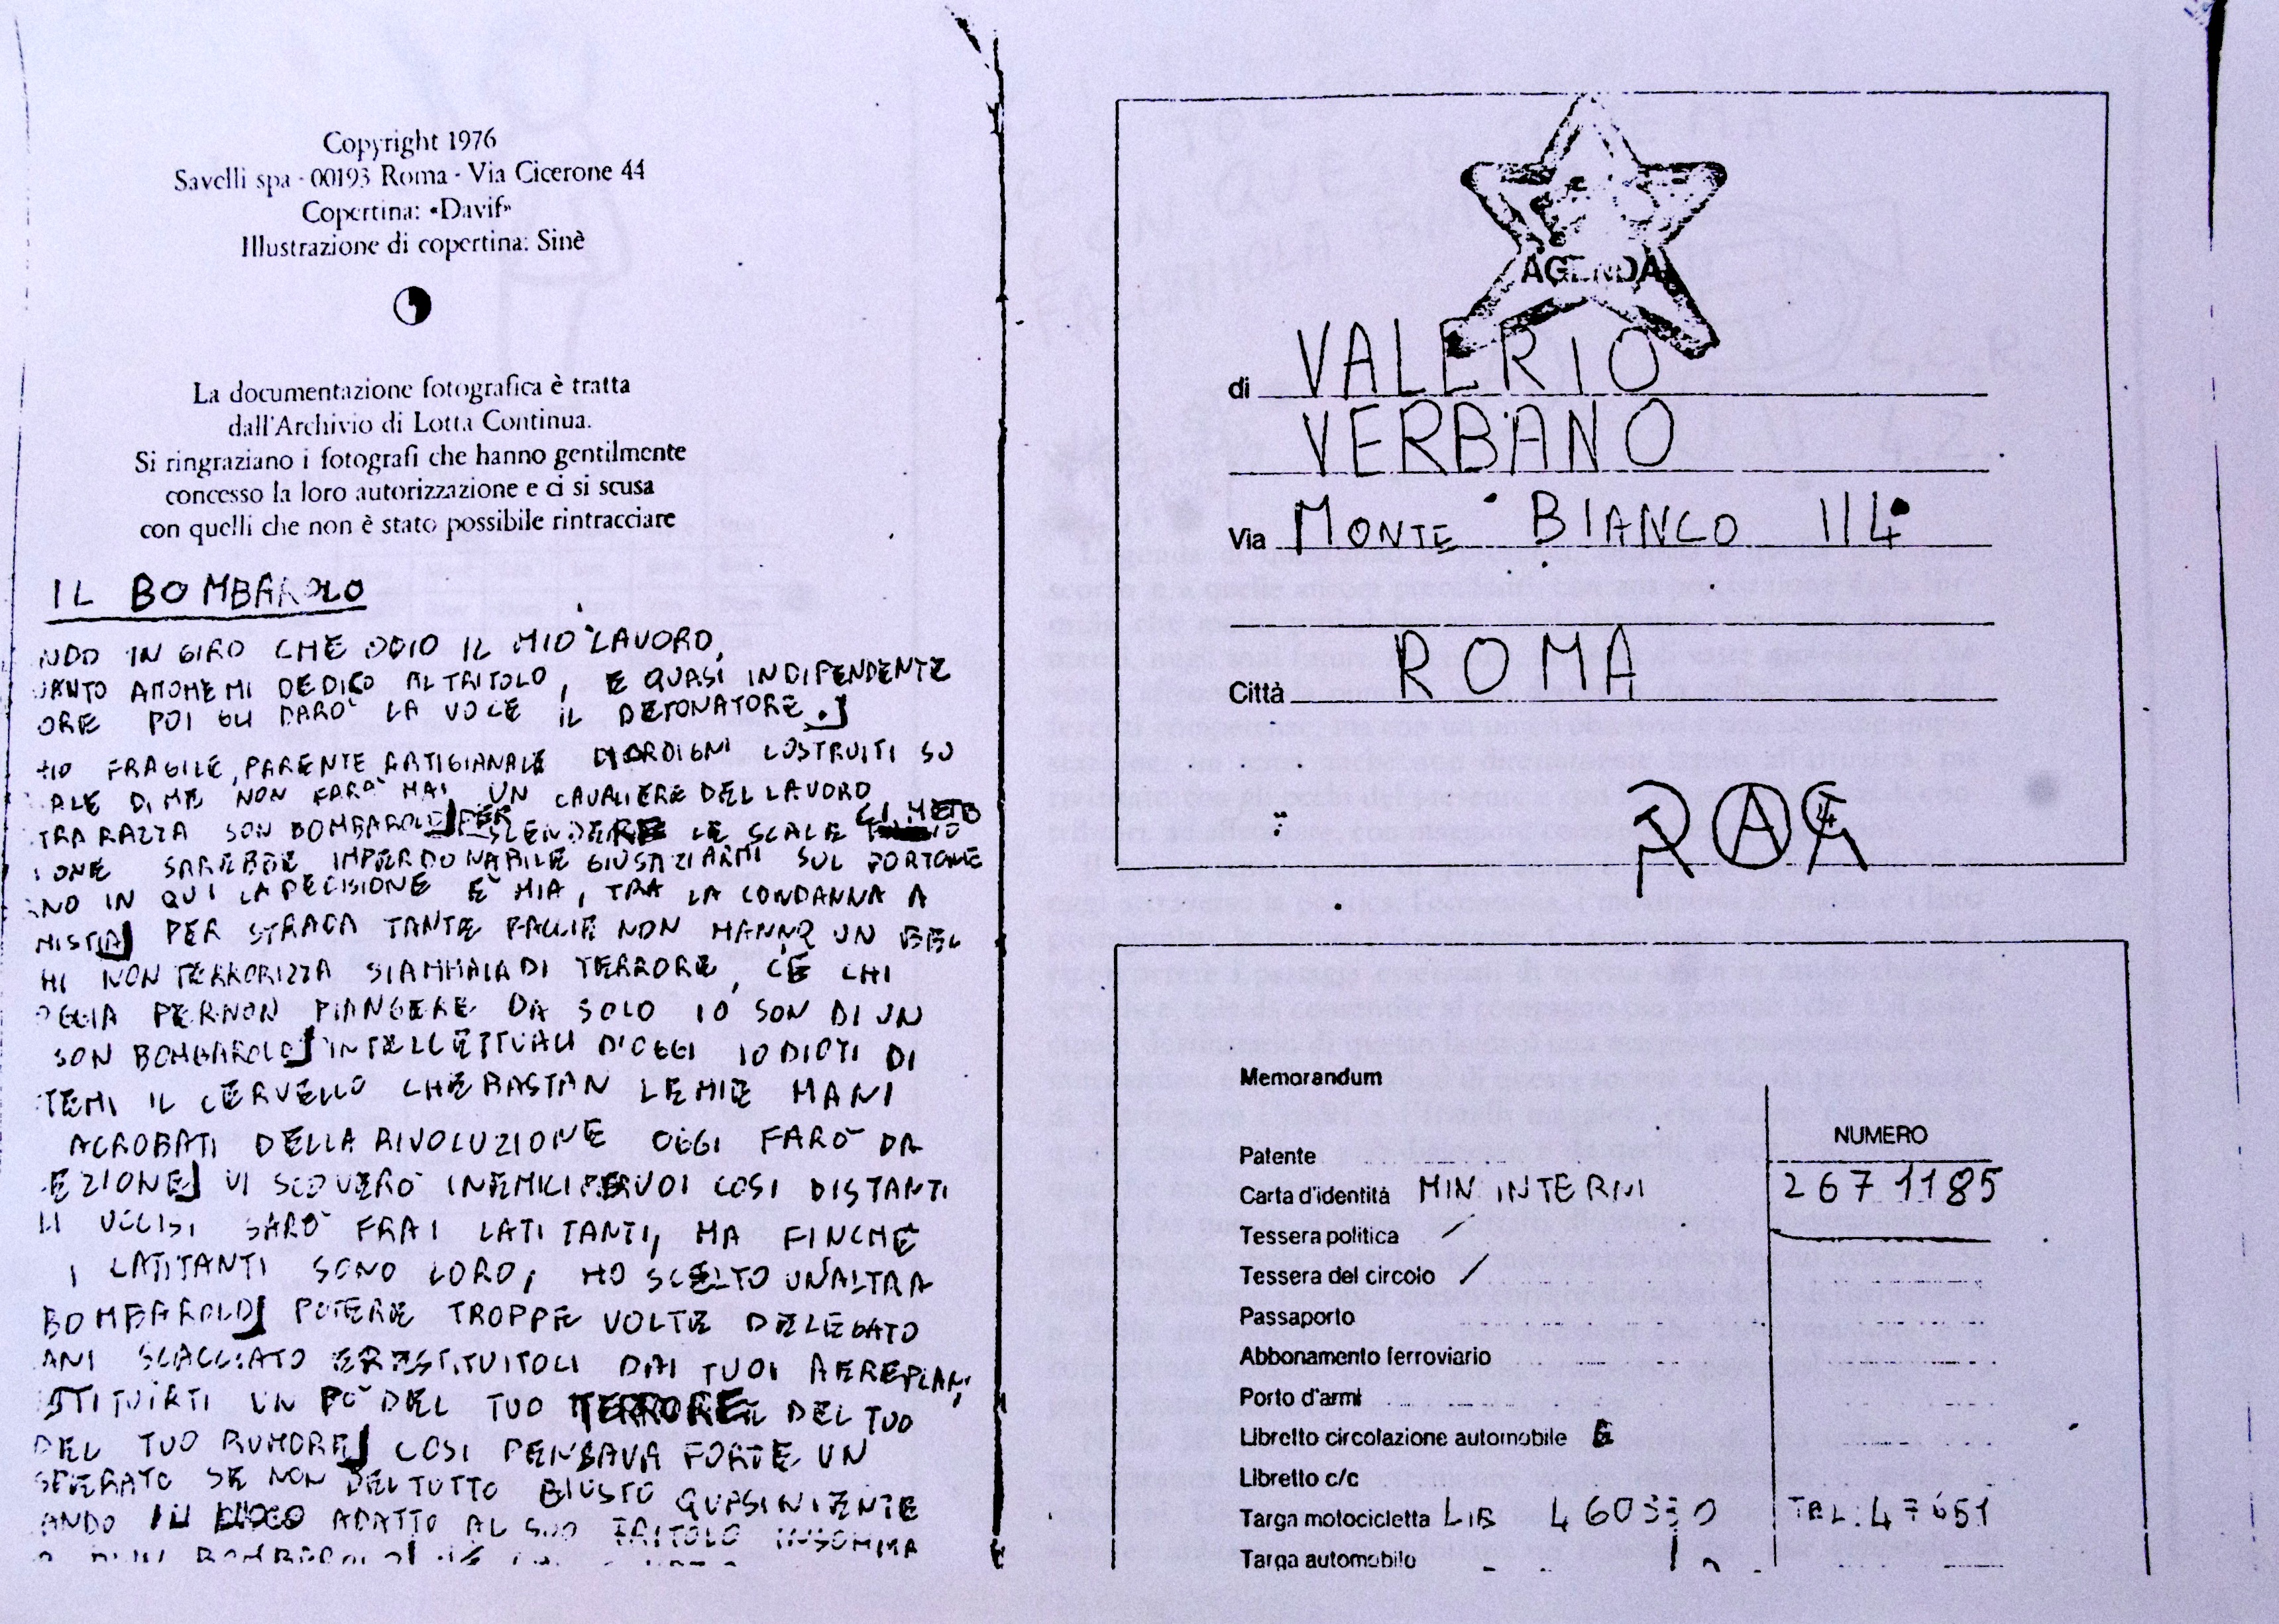 Copyright 1976
Savelli spa - 00193 Roma - Via Cicerone 44
Copertina: «Davif»
Illustrazione di copertina: Sinè
La documentazione fotografica è tratta
dall'Archivio di Lotta Continua.
Si ringraziano i fotografi che hanno gentilmente
concesso la loro autorizzazione e ci si scusa
con quelli che non è stato possibile rintracciare
IL BOMBAROLO
NDO IN GIRO CHE ODIO IL MIO LAVORO,
UANTO AMOHE MI DEDICO AL TRITOLO, E QUASI INDIPENDENTE
ORE POI GLI DARO' LA VOCE IL DETONATORE.
HIO FRAGILE, PARENTE ARTIGIANALE DI ORDIGNI COSTRUITI SU
ALE DI ME NON FARA' MAI UN CAVALIERE DEL LAVORO
TRA RAZZA SON BOMBAROLO PER SCENDERE LE SCALE CI METO
IONE SAREBBE IMPERDONABILE GIUSTIZIARMI SUL PORTONE
NO IN CUI LA DECISIONE E' MIA, TRA LA CONDANNA A
NISTIA PER STRADA TANTE FACCIE NON HANNO UN BEL
HI NON TERRORIZZA SI AMMALA DI TERRORE, C'È CHI
OGGIA PER NON PIANGERE DA SOLO IO SON DI UN
SON BOMBAROLO INTELLETTUALI D'OGGI IDIOTI DI
TEMI IL CERVELLO CHE BASTAN LE MIE MANI
ACROBATI DELLA RIVOLUZIONE OGGI FARO' DA
EZIONE VI SCOVERO' I NEMICI PER VOI COSI DISTANTI
LI UCCISI SARO' FRA I LATITANTI, MA FINCHÈ
I LATITANTI SONO LORO; HO SCELTO UN'ALTRA
BOMBAROLO POTERE TROPPE VOLTE DELEGATO
ANI SCACCIATO E RESTITUITOLI DAI TUOI AEREPLANI
STITUIRTI UN PO' DEL TUO TERRORE DEL TUO
DEL TUO RUMORE COSI PENSAVA FORTE UN
SPERATO SE NON DEL TUTTO GIUSTO QUASI NIENTE
ANDO IL LUOGO ADATTO AL SUO TRITOLO INSOMMA
AGENDA
di VALERIO
VERBANO
Via MONTE BIANCO 114
Città ROMA
Memorandum
NUMERO
Patente
Carta d'identità MIN INTERNI 2671185
Tessera politica /
Tessera del circolo /
Passaporto
Abbonamento ferroviario
Porto d'armi
Libretto circolazione automobile
Libretto c/c
Targa motocicletta TEL. 47651
Targa automobile